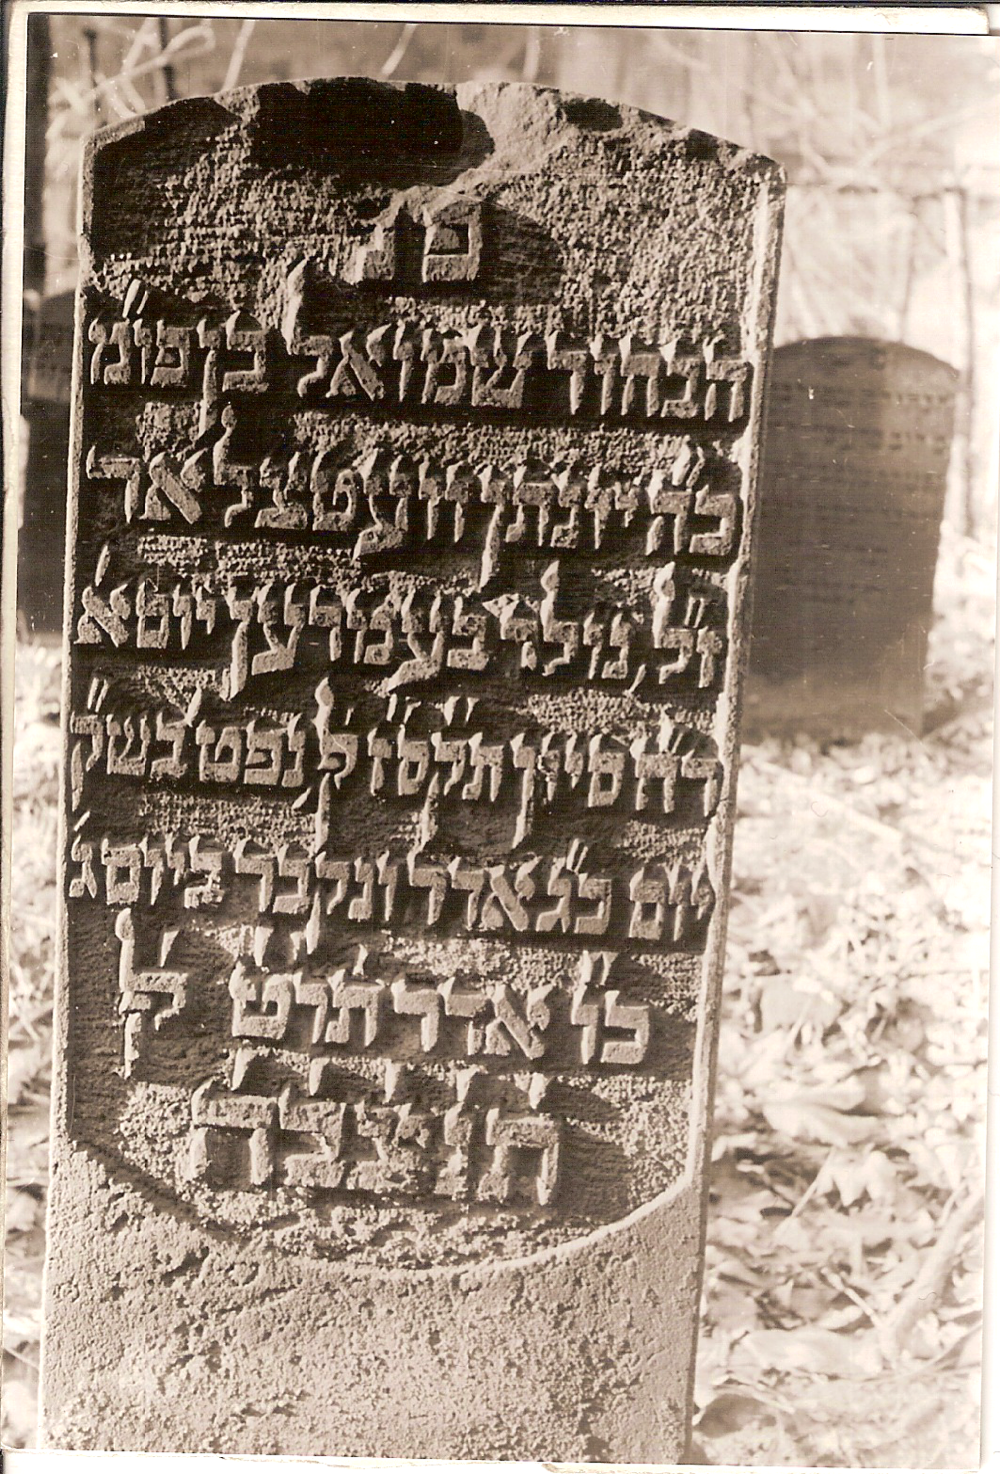 פ נ
הבחור שמואל בן פו"מ
כה' יונתן וועטצלאר
ז"ל, נולד בעמדען
ר"ח סיון תקס"ז לק נפט' בש"ק
יום כ"ג אדר ונקבר ביום ג'
כ"ו אדר תר"ט לק'
תנצבה